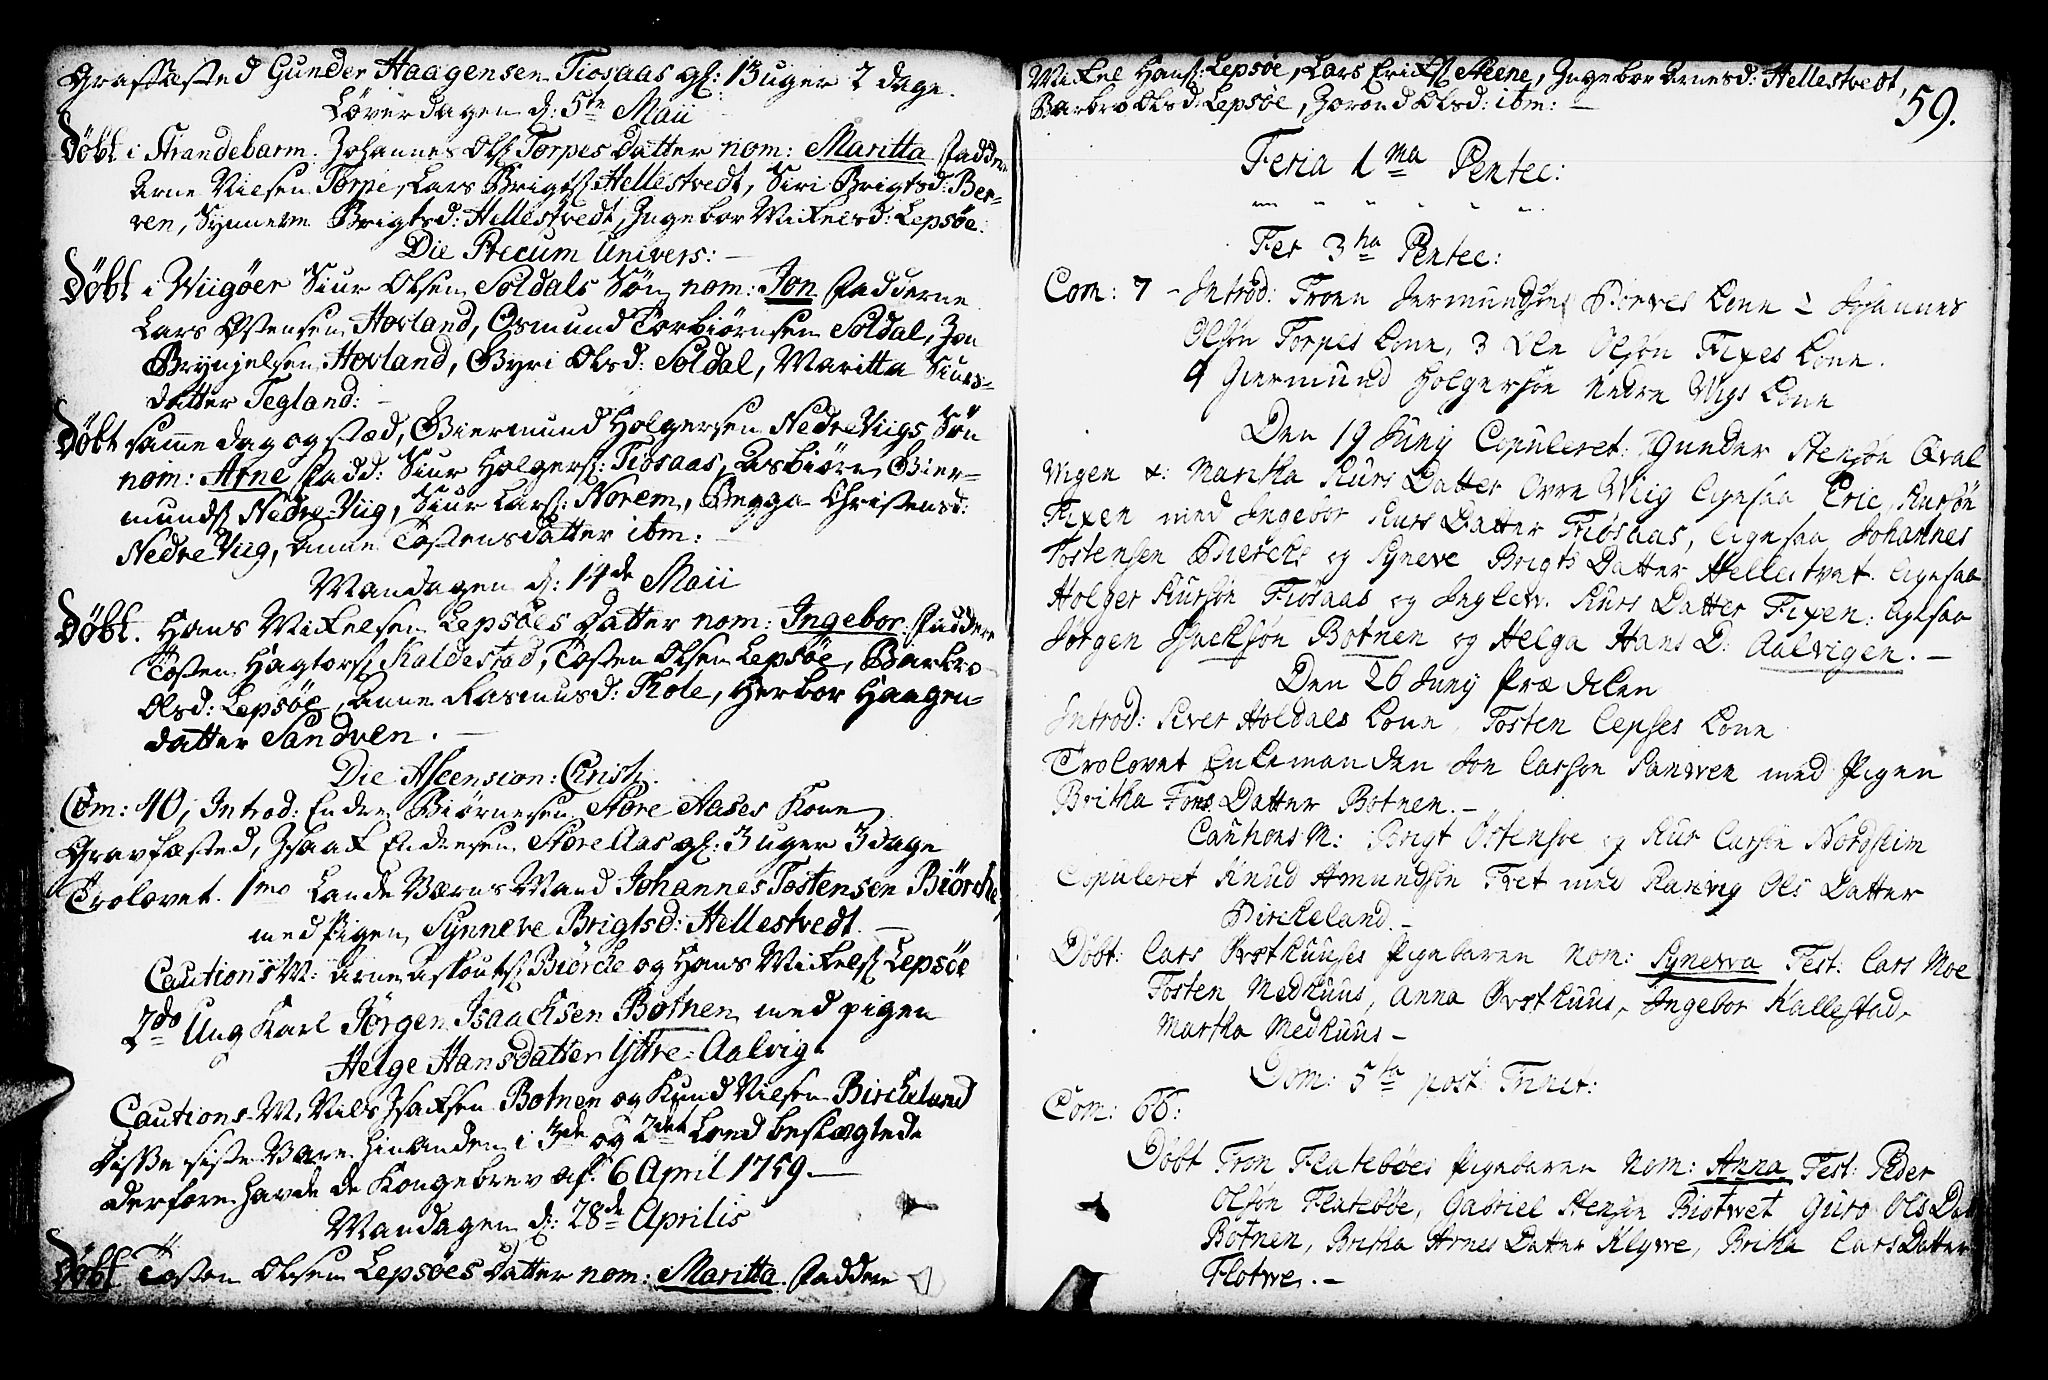 Graffæsted Gunder Haagensen Tiosaas gl: 13 uger 2 dage.
Löverdagen d: 5te Maii
Döbt i Strandebarm Johannes Ols: Torpes datter nom: Maritta Faddere
Arne Nielsen Torpe, Lars Brigts: Hellestvedt, Siri Brigtsd: Ber-
ven, Synneve Brigtsd: Hellestvedt, Ingebor Mikelsd: Lepsöe.
Die Precum Univers: —
Döbt i Wiigöer Siur Olsen Soldals Sön nom: Jon Fadderne
Lars Östensen Hovland, Osmund Torbiörnsen Soldal, Jon
Brynjelsen Hovland, Gyri Olsd: Soldal, Maritta Siurs-
datter Tegland: —
Döbt samme dag og stæd, Giermund Holgersen Nedre Viigs Sön
nom: Arne Fadd: Siur Holgers: Tiosaas, Asbiörn Gier-
munds: Nedre-Viig, Siur Lars: Norem, Christensd:
Nedre Viig, Anne Tostensdatter ibm: —
Mandagen d: 14de Maii
Döbt. Hans Mikelsen Lepsöes datter nom: Ingebor. Faddere
Tosten Hagtors: Kaldestad, Tosten Olsen Lepsöe, Barbro
Olsd: Lepsöe, Anne Rasmusd: Kole, Herbor Haagen-
datter Sandven. —
Die Ascension: Christi.
Com: 40, Introd: Endre Biörnesen Store Aases Kone
Gravfæsted, Isaak Endresen Store Aas gl: 3 uger 3 dage
Trolovet. 1mo Lande Værns Mand Johannes Tostensen Biörche,
med Pigen, Synneve Brigtsd: Hellestvedt. —
Cautions M: Arne Biörche og Hans Mikels: Lepsöe
2do Ung Karl Jörgen Isaachsen Botnen med pigen
Helge Hansdatter Yttre-Aalvig.
Cautions-M, Niels Isacksen Botnen og Knud Nielsen Bircheland
Disse siste Vare hinanden i 3de og 2det Leed beslægtede
derfore havde de Kongebrev af 6 April 1759. —
Mandagen d: 28de Aprilis
Döbt Tosten Olsen Lepsöes datter nom: Maritta. Faddere
Mikel Hans: Lepsöe, Lars Ericks: Steene, Ingebor Arnesd: Hellestvedt,
Barbro Olsd: Lepsöe, Olsd: ibm: —
59.
Feria 1ma Pentec:
Fer 3tia Pentec:
Com: 7 - Introd: Troen Jermundsens Kone 2 Johannes
Olsön Torpes Kone, 3 Ole Olsön Fixes Kone.
4 Giermund Holgersön Nedre Vigs Kone
Den 19 Junij Copuleret: Gunder Stensön Qval
vigen &: Maritha Siurs Datter Övre Wiig ligesaa Eric Siursön
Fixen med Ingebor Siurs Datter Fiosaas, ligesaa Johannes
Tostensen Biercke og Syneve Brigts Datter Hellestvet. ligesaa
Holger Siursön Fiosaas og Siurs Datter Fixen: ligesaa
Jörgen Botnen og Helga Hans D: Aalvigen. —
Den 26 Junij
Introd: Siver Holdals Kone, Tosten Lepses Kone
Trolovet Enkemanden Jon Larsön Sanwen med Pigen
Britha Tors Datter Botnen. —
Cautions M: Brigt Östensöe og Siur Larsön Nordheim
Copuleret Knud Amundsön Tvet med Ranvig Ols Datter
Birckeland. —
Döbt: Lars Övsthuuses Pigebaren nom: Synewa Test: Lars Moe
Tosten Medhuus, Anna Övsthuus, Ingebor Kallestad,
Martha Medhuus —
Dom: 5ta post Trinit:
Com: 66:
Döbt Tron Flateböes Pigebaren nom: Anna Test: Peder
Olsön Flateböe, Gabriel Stensön Biotwet Guro Ols Datt
Botnen, Britha Arnes Datter Klywe, Britha Lars Datter
Flotwe. —